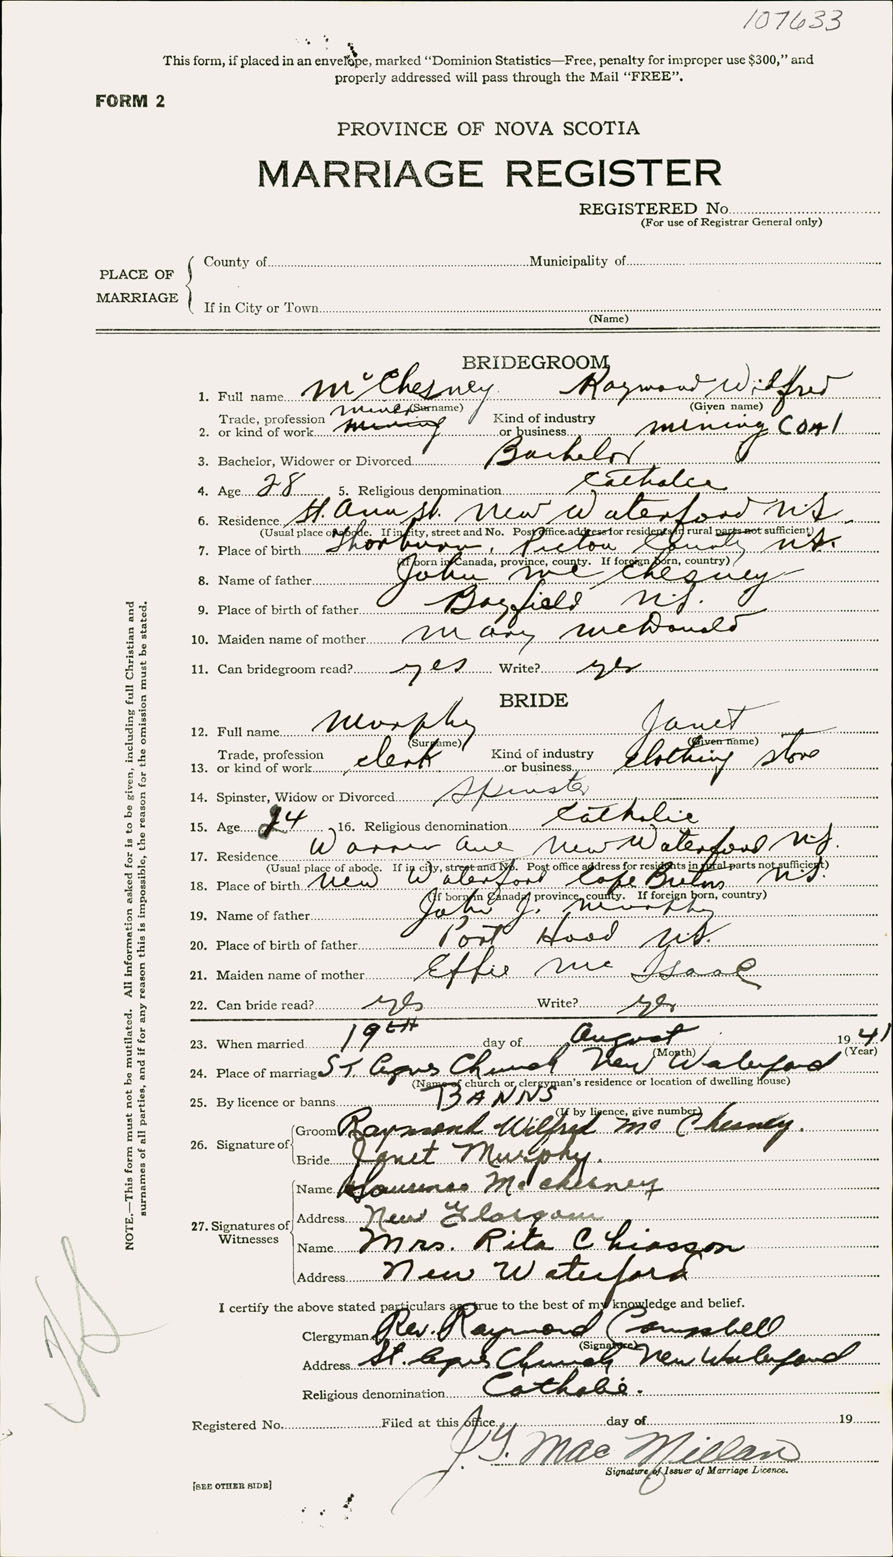 107633
This form, if placed in an envelope, marked "Dominion Statistics—Free, penalty for improper use $300," and
properly addressed will pass through the Mail "FREE".
FORM 2
PROVINCE OF NOVA SCOTIA
MARRIAGE REGISTER
REGISTERED No.
(For use of Registrar General only)
PLACE OF MARRIAGE
County of Municipality of
If in City or Town
(Name)
BRIDEGROOM
1. Full name McChesney Raymond Wilfred
(Surname) (Given name)
2. Trade, profession or kind of work miner mining Kind of industry or business mining Coal
3. Bachelor, Widower or Divorced Bachelor
4. Age 28 5. Religious denomination Catholic
6. Residence St. Ann St. New Waterford N.S.
(Usual place of abode. If in city, street and No. Post office address for residents in rural parts not sufficient)
7. Place of birth Thorburn, Pictou County N.S.
(If born in Canada, province, county. If foreign born, country)
8. Name of father John McChesney
9. Place of birth of father Bayfield N.S.
10. Maiden name of mother Mary McDonald
11. Can bridegroom read? yes Write? yes
BRIDE
12. Full name Murphy Janet
(Surname) (Given name)
13. Trade, profession or kind of work clerk Kind of industry or business clothing store
14. Spinster, Widow or Divorced Spinster
15. Age 24 16. Religious denomination Catholic
17. Residence Warren Ave New Waterford N.S.
(Usual place of abode. If in city, street and No. Post office address for residents in rural parts not sufficient)
18. Place of birth New Waterford Cape Breton N.S.
(If born in Canada, province, county. If foreign born, country)
19. Name of father John J. Murphy
20. Place of birth of father Port Hood N.S.
21. Maiden name of mother Effie McIsaac
22. Can bride read? yes Write? yes
23. When married 19TH day of August 1941
(Month) (Year)
24. Place of marriage St Agnes Church New Waterford
(Name of church or clergyman's residence or location of dwelling house)
25. By licence or banns BANNS
(If by licence, give number)
26. Signature of Groom Raymond Wilfred McChesney.
Bride Janet Murphy.
27. Signatures of Witnesses Name Laurence McChesney
Address New Glasgow
Name Mrs. Rita Chiasson
Address New Waterford
I certify the above stated particulars are true to the best of my knowledge and belief.
Clergyman Rev. Raymond Campbell
(Signature)
Address St. Agnes Church New Waterford
Religious denomination Catholic.
Registered No. Filed at this office day of 19
J. G. MacMillan
Signature of Issuer of Marriage Licence.
[SEE OTHER SIDE]
NOTE.—This form must not be mutilated. All information asked for is to be given, including full Christian and
surnames of all parties, and if for any reason this is impossible, the reason for the omission must be stated.